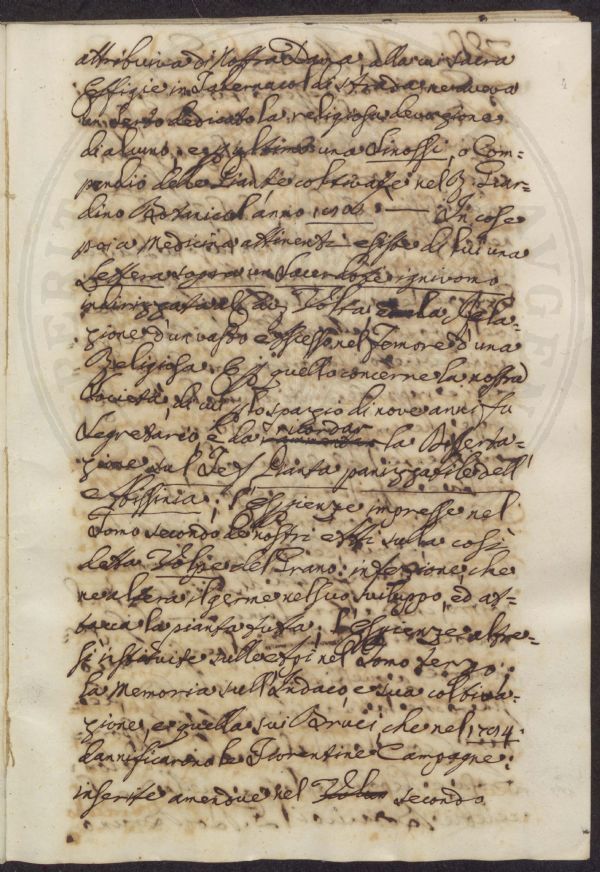 attribuiva di Nostra Donna, alla cui sacra
Effigie in Tabernacol di strada ne aveva
un terzo dedicato la religiosa devozione
di alcuno; e per ultimo una Sinossi, o Com-
pendio delle Piante coltivate nel R. Giar-
dino Botanico l'anno — In cose
poi a Medicina attinenti esiste di lui una
Lettera sopra un Sacerdote ignivomo
indirizzata al Volta e la Rela-
zione d'un vasto ascesso nel Femore d'una
Religiosa. Per quello concerne la nostra
Società, di cui per lo spazio di nove anni fu
Segretario è da rammentar ricordar la Disserta-
zione sul Teff Pianta panizzabile dell'
Abissinia; l'Esperienze impresse nel
Tomo secondo de' nostri Atti sulla così
detta Volpe del Grano, infezione che
ne altera il germe nel suo sviluppo, ed at-
tacca la pianta tutta; l'Esperienze altre-
sì istituite sulle Api nel Tomo terzo:
la Memoria sull'Indaco, e sua coltiva-
zione, e quella sui Bruci, che nel 1794.
dannificarono le Fiorentine Campagne:
inserite amendue nel secondo